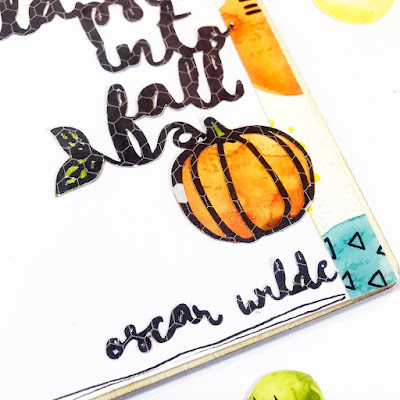 into
fall
oscar wilde